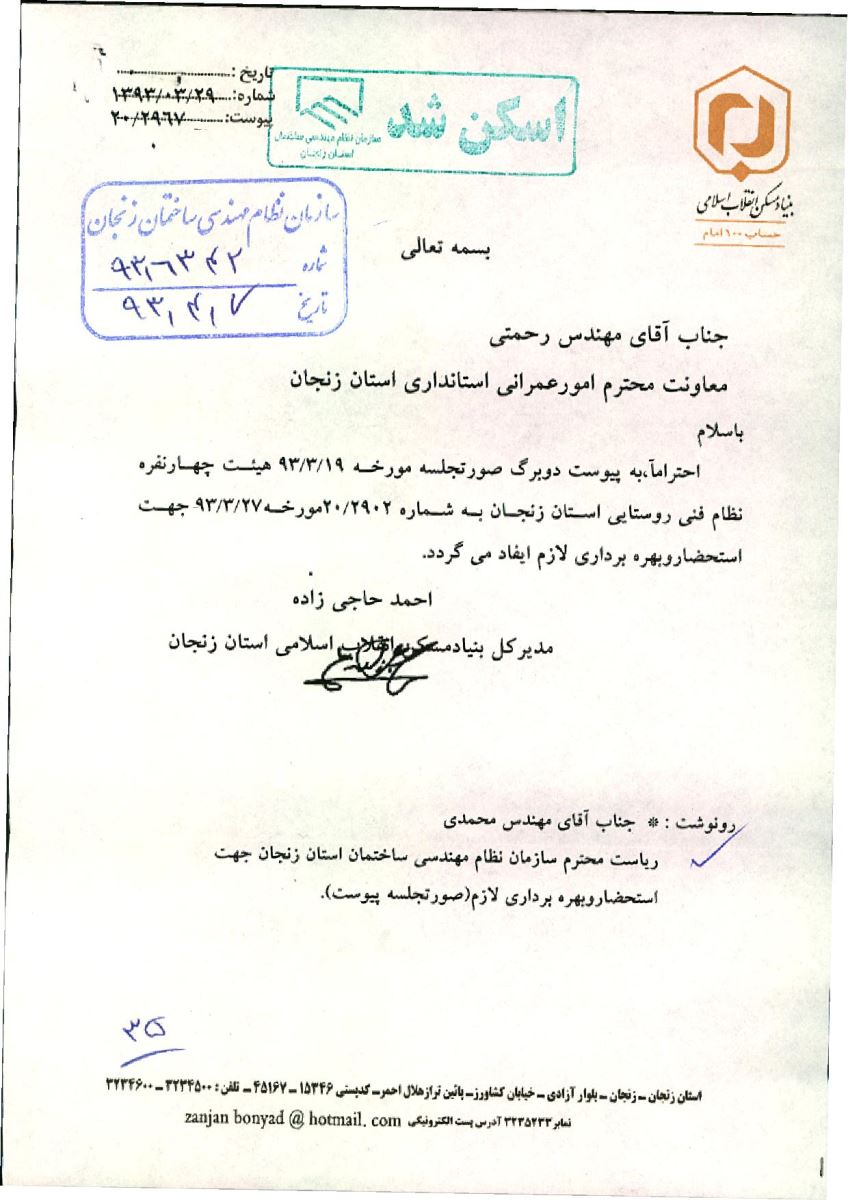 تاریخ :
شماره: ۱۳۹۳/۰۳/۲۹
پیوست: ۲۰/۲۹۶۷
اسکن شد
سازمان نظام مهندسی ساختمان
استان زنجان
بنیاد مسکن انقلاب اسلامی
حساب ۱۰۰ امام
سازمان نظام مهندسی ساختمان زنجان
شماره
تاریخ ۹۳,۴,۷
بسمه تعالی
جناب آقای مهندس رحمتی
معاونت محترم امورعمرانی استانداری استان زنجان
باسلام
احتراماً،به پیوست دوبرگ صورتجلسه مورخه ۹۳/۳/۱۹ هیئت چهارنفره
نظام فنی روستایی استان زنجان به شماره ۲۰/۲۹۰۲مورخه۹۳/۳/۲۷ جهت
استحضاروبهره برداری لازم ایفاد می گردد.
احمد حاجی زاده
مدیرکل بنیادمسکن انقلاب اسلامی استان زنجان
رونوشت : * جناب آقای مهندس محمدی
ریاست محترم سازمان نظام مهندسی ساختمان استان زنجان جهت
استحضاروبهره برداری لازم(صورتجلسه پیوست).
۳۵
استان زنجان ـ زنجان ـ بلوار آزادی ـ خیابان کشاورز ـ پائین ترازهلال احمر ـ کدپستی ۱۵۳۴۶ ـ ۴۵۱۶۷ ـ تلفن : ۳۲۳۴۵۰۰ ـ ۳۲۳۴۶۰۰
نمابر ۳۲۳۵۲۳۳ آدرس پست الکترونیکی zanjan bonyad @ hotmail. com